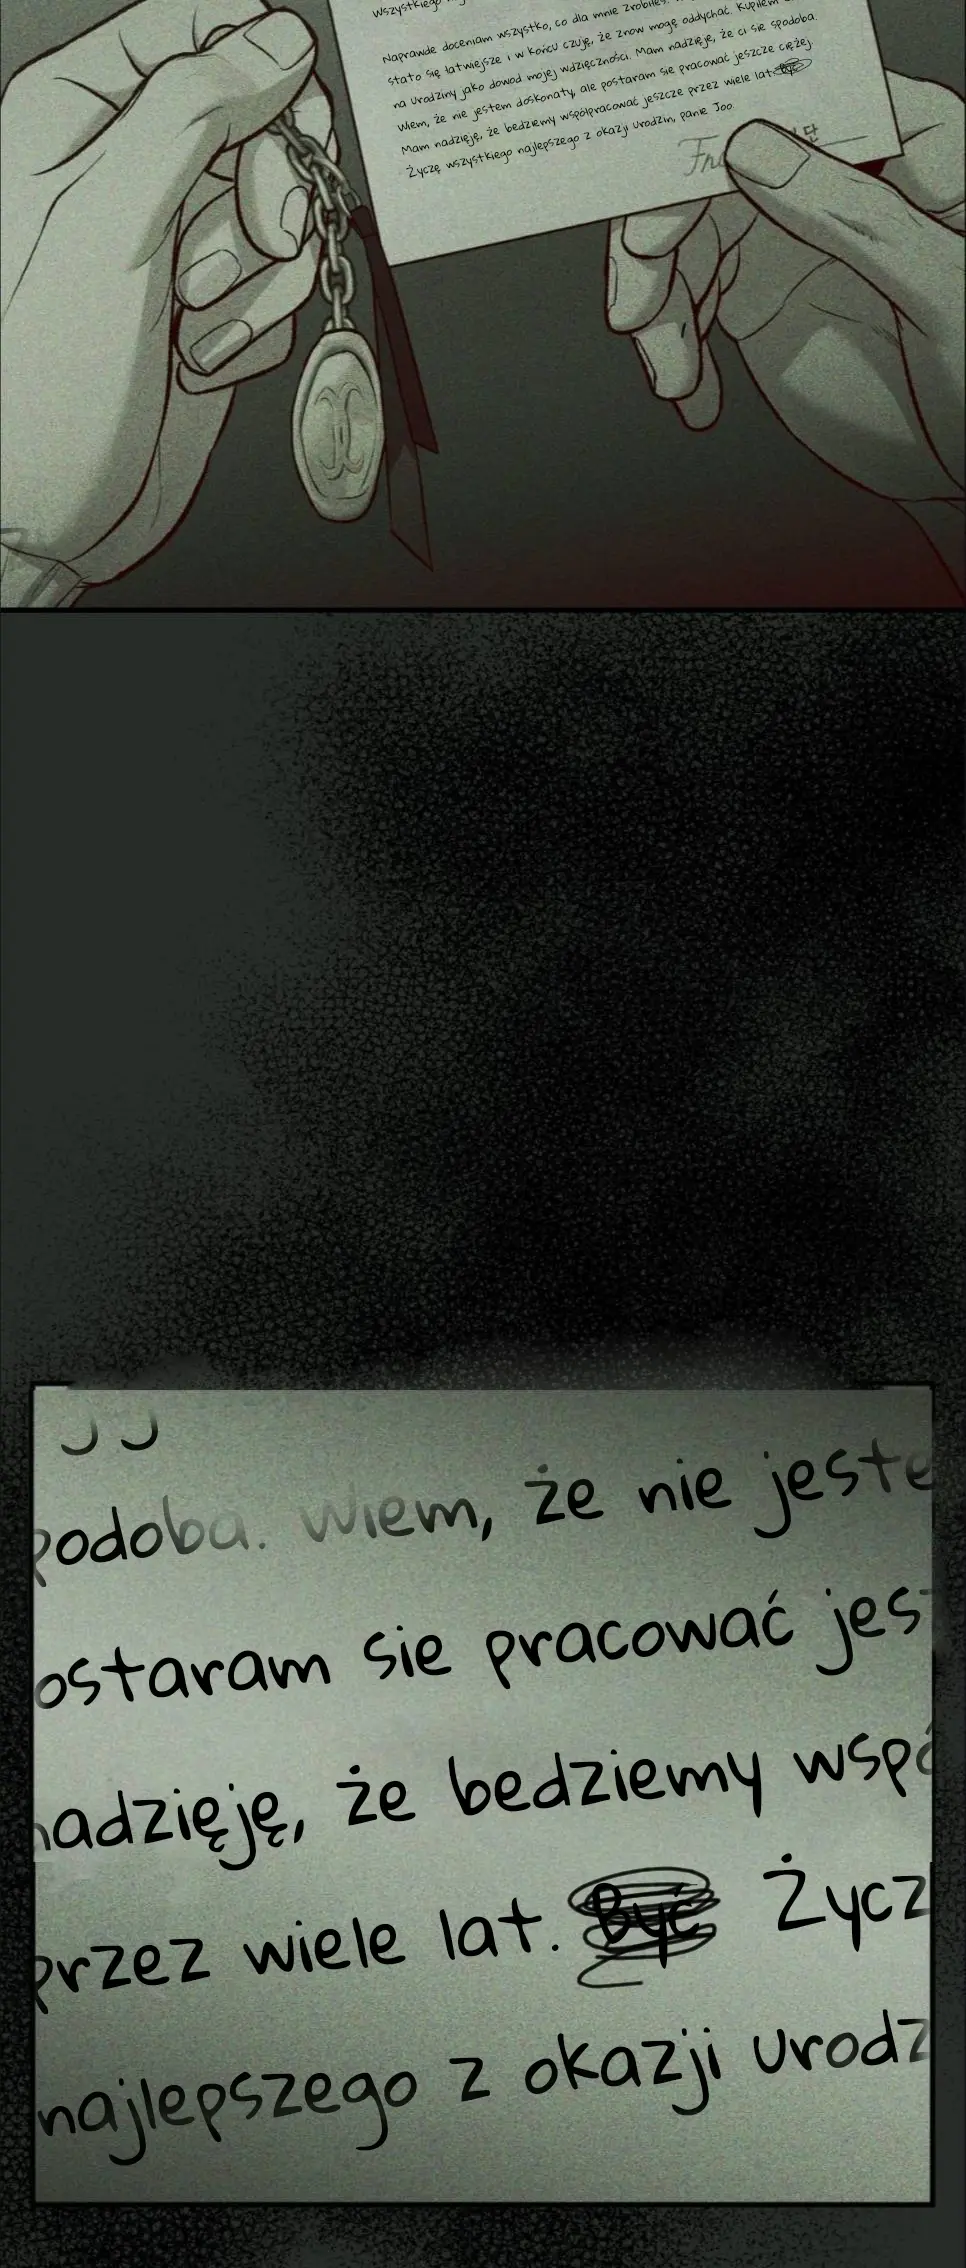 Wszystkiego
Naprawde doceniam wszystko, co dla mnie zrobiłeś.
stało się łatwiejsze i w końcu czuję, że znow mogę oddychać. Kupiłem
na urodziny jako dowod mojej wdzięczności. Mam nadzieje, że ci sie spodoba.
Wiem, że nie jestem doskonały, ale postaram sie pracować jeszcze ciężej.
Mam nadzieję, że bedziemy współpracować jeszcze przez wiele lat. Być
Życzę wszystkiego najlepszego z okazji urodzin, panie Joo.
단
podoba. Wiem, że nie jeste
ostaram sie pracować jes
nadzięję, że bedziemy wspó
przez wiele lat. Być Życz
najlepszego z okazji urodz